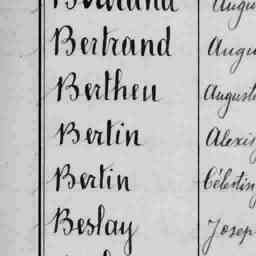 Bertrand Augu
Bertrand Augu
Bertheu August
Bertin Alexis
Bertin Célestin
Beslay Josep